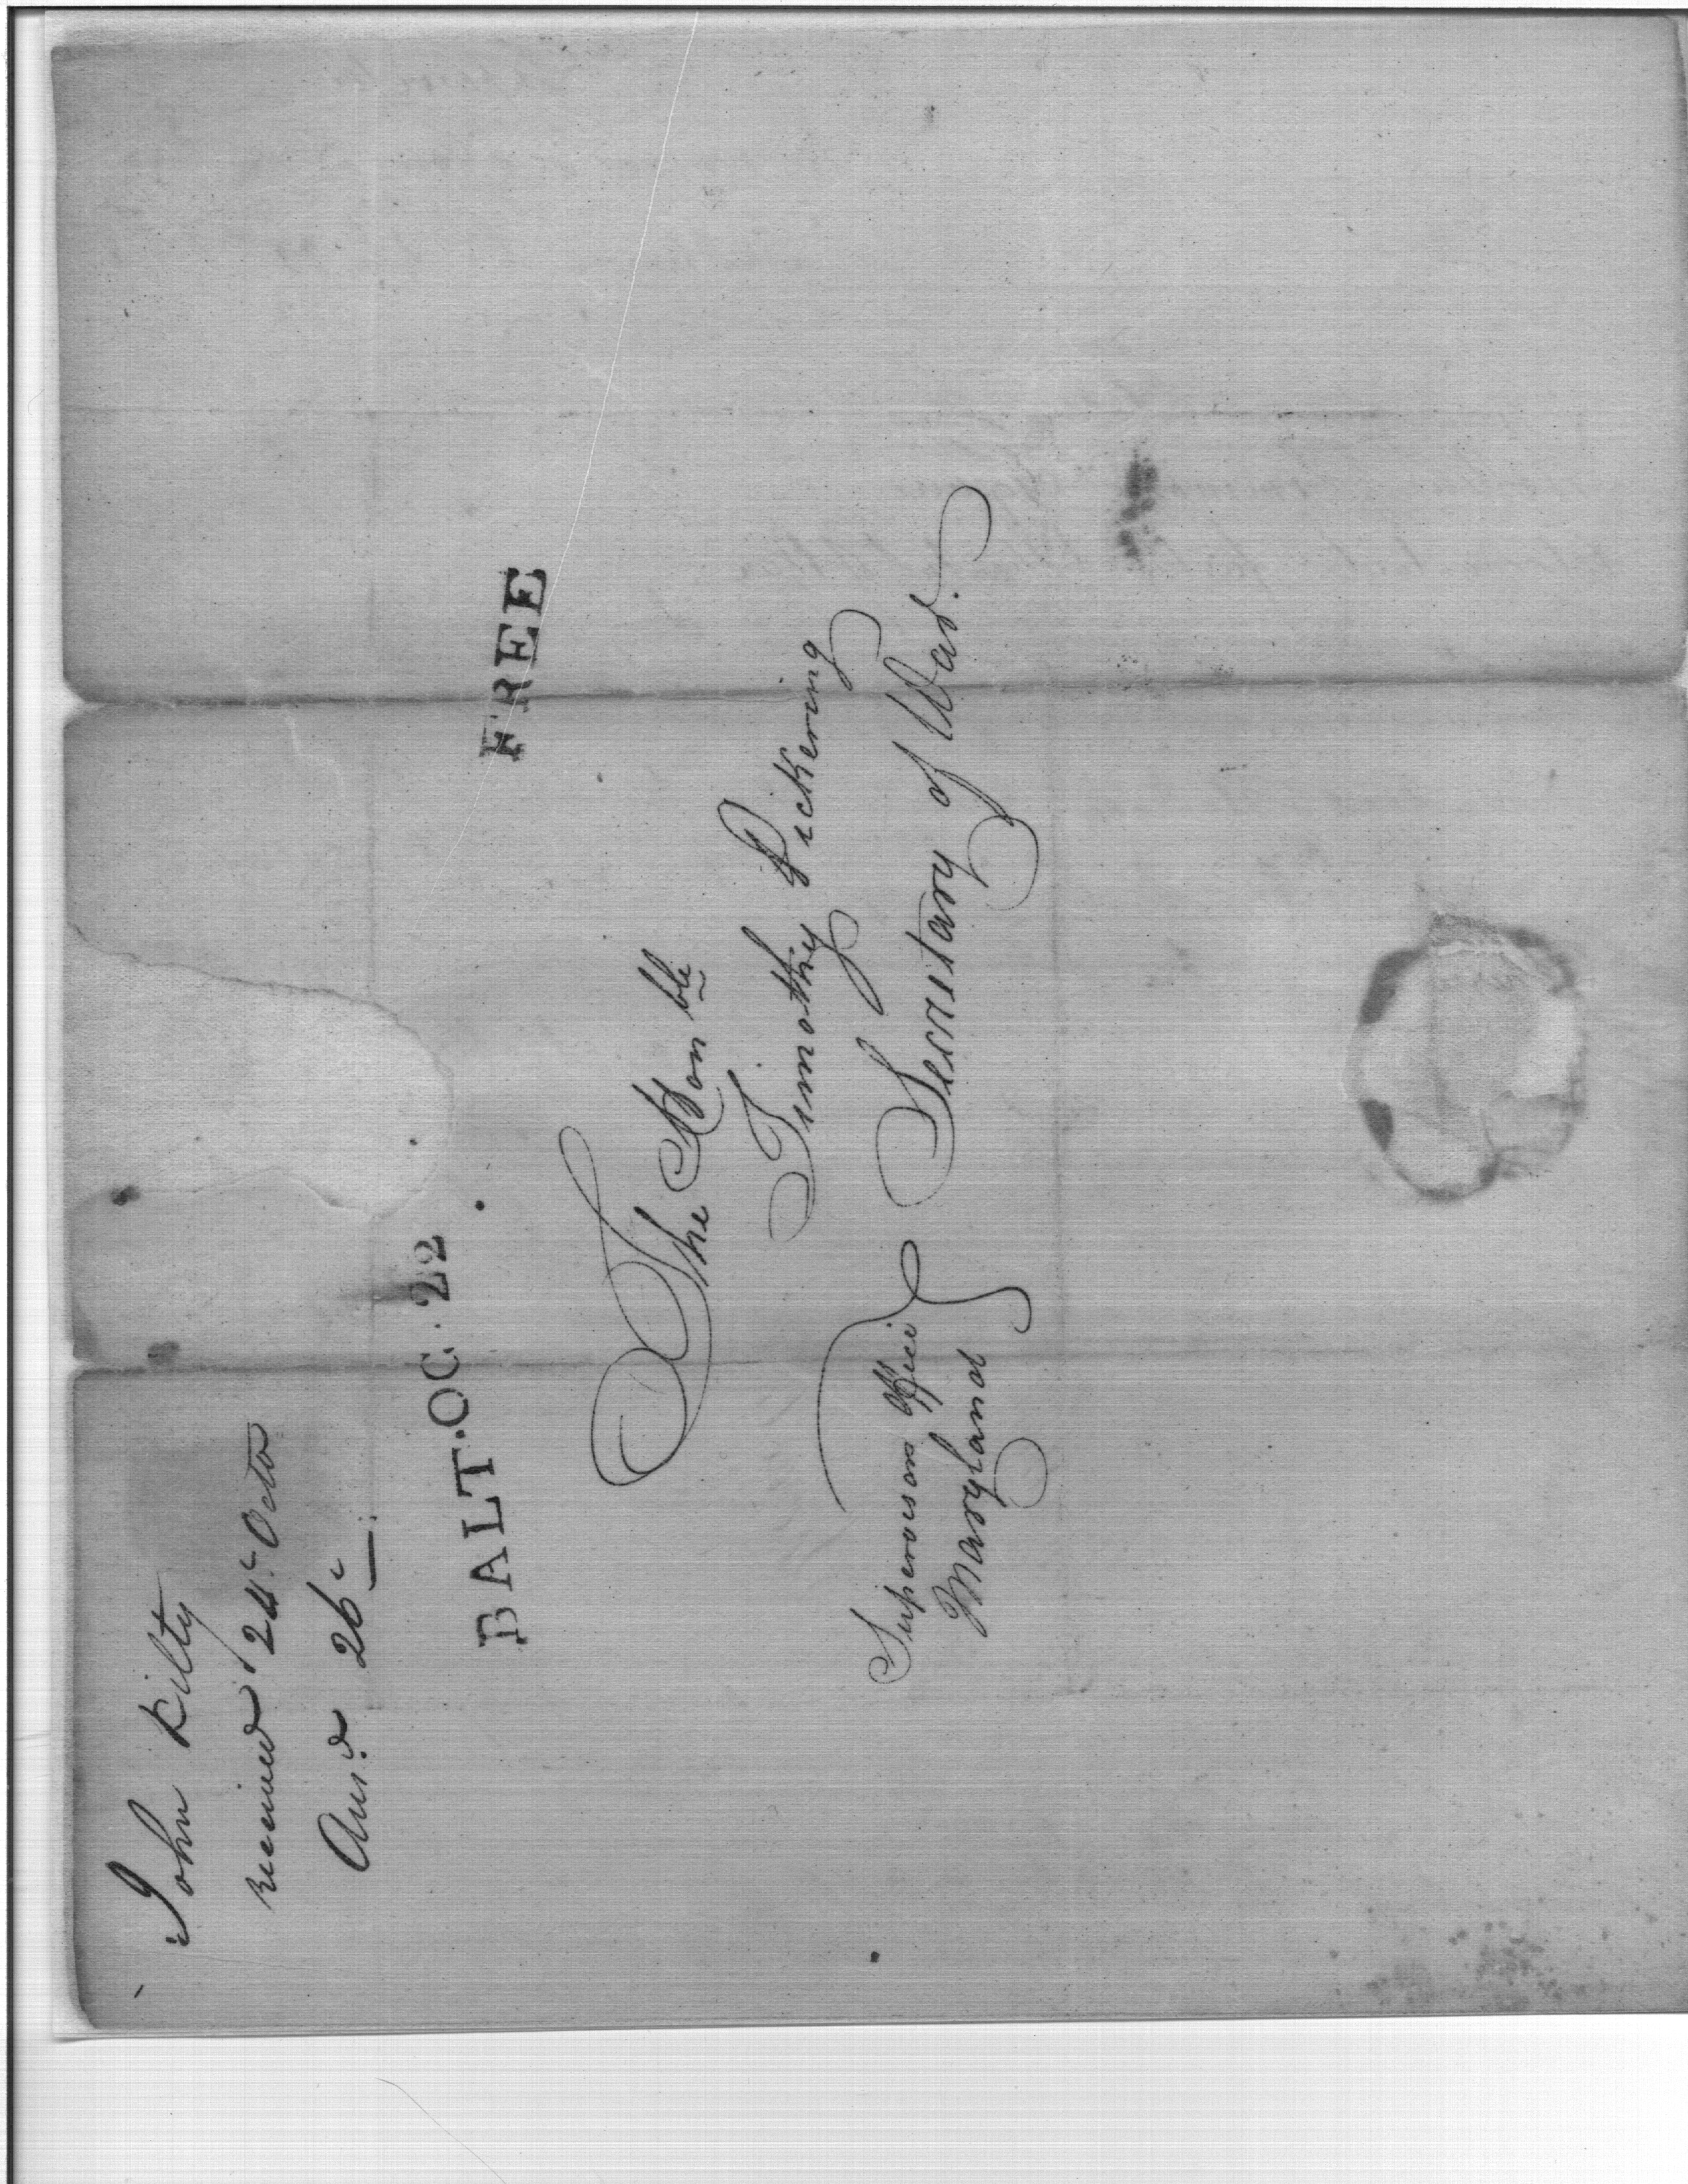 John Kilty
received 24th Octo
Ansd 26th
BALT. OC. 22
FREE
The Honble
Timothy Pickering
Secretary of War.
Supervisors Office
Maryland